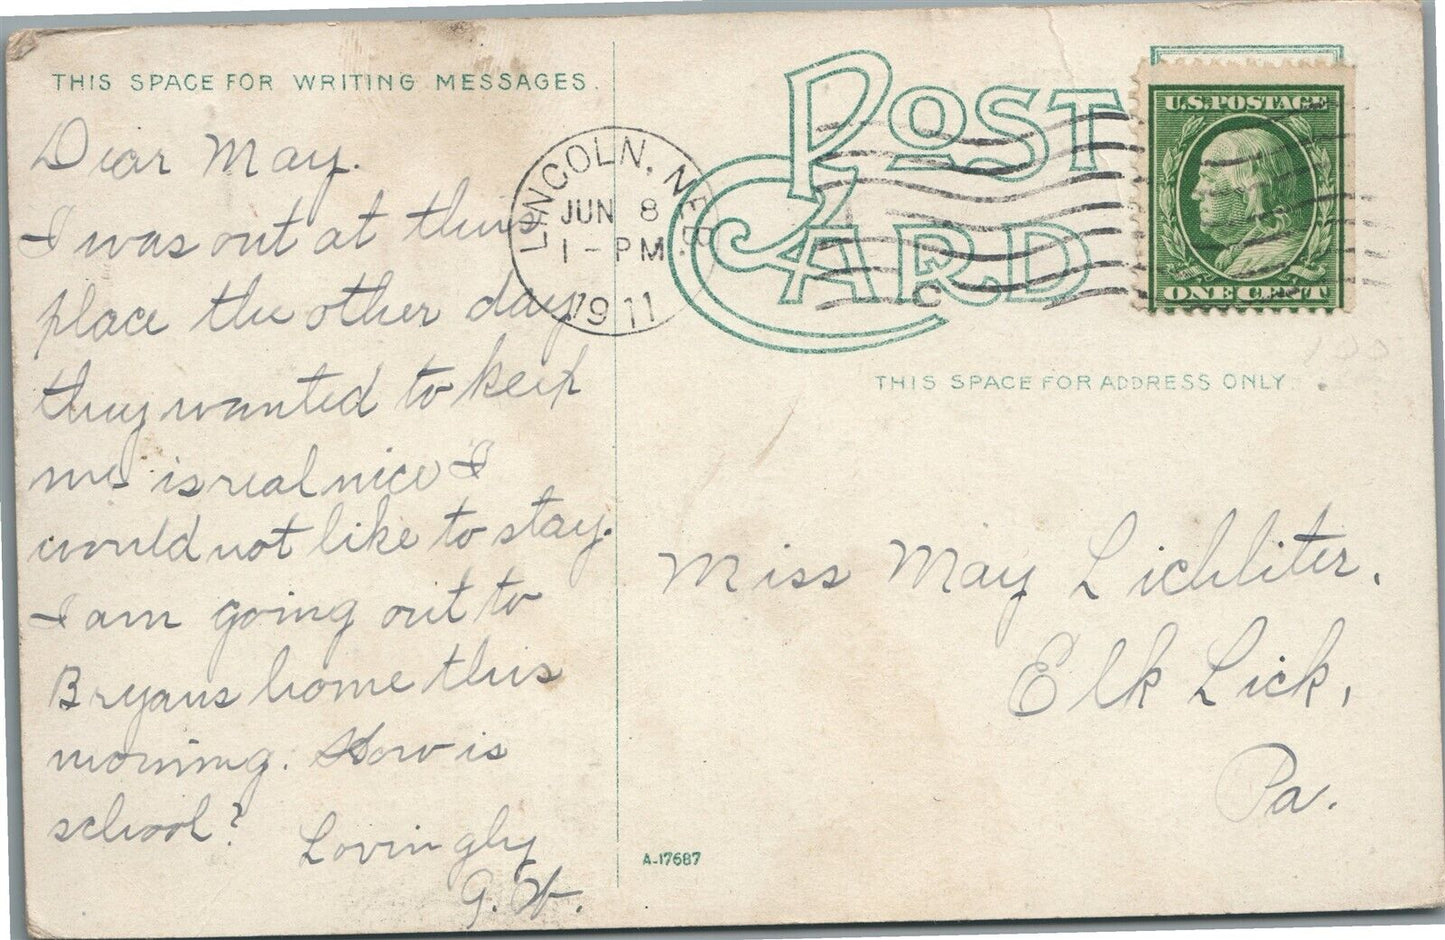 THIS SPACE FOR WRITING MESSAGES.
Dear May.
I was out at this
place the other day
they wanted to keep
me is real nice I
would not like to stay.
I am going out to
Bryans home this
morning. How is
school?
Lovingly
G. W.
LINCOLN, NEB.
JUN 8
1 - PM
1911
POST CARD
U.S. POSTAGE
ONE CENT
THIS SPACE FOR ADDRESS ONLY
Miss May Lichliter.
Elk Lick,
Pa.
A-17687